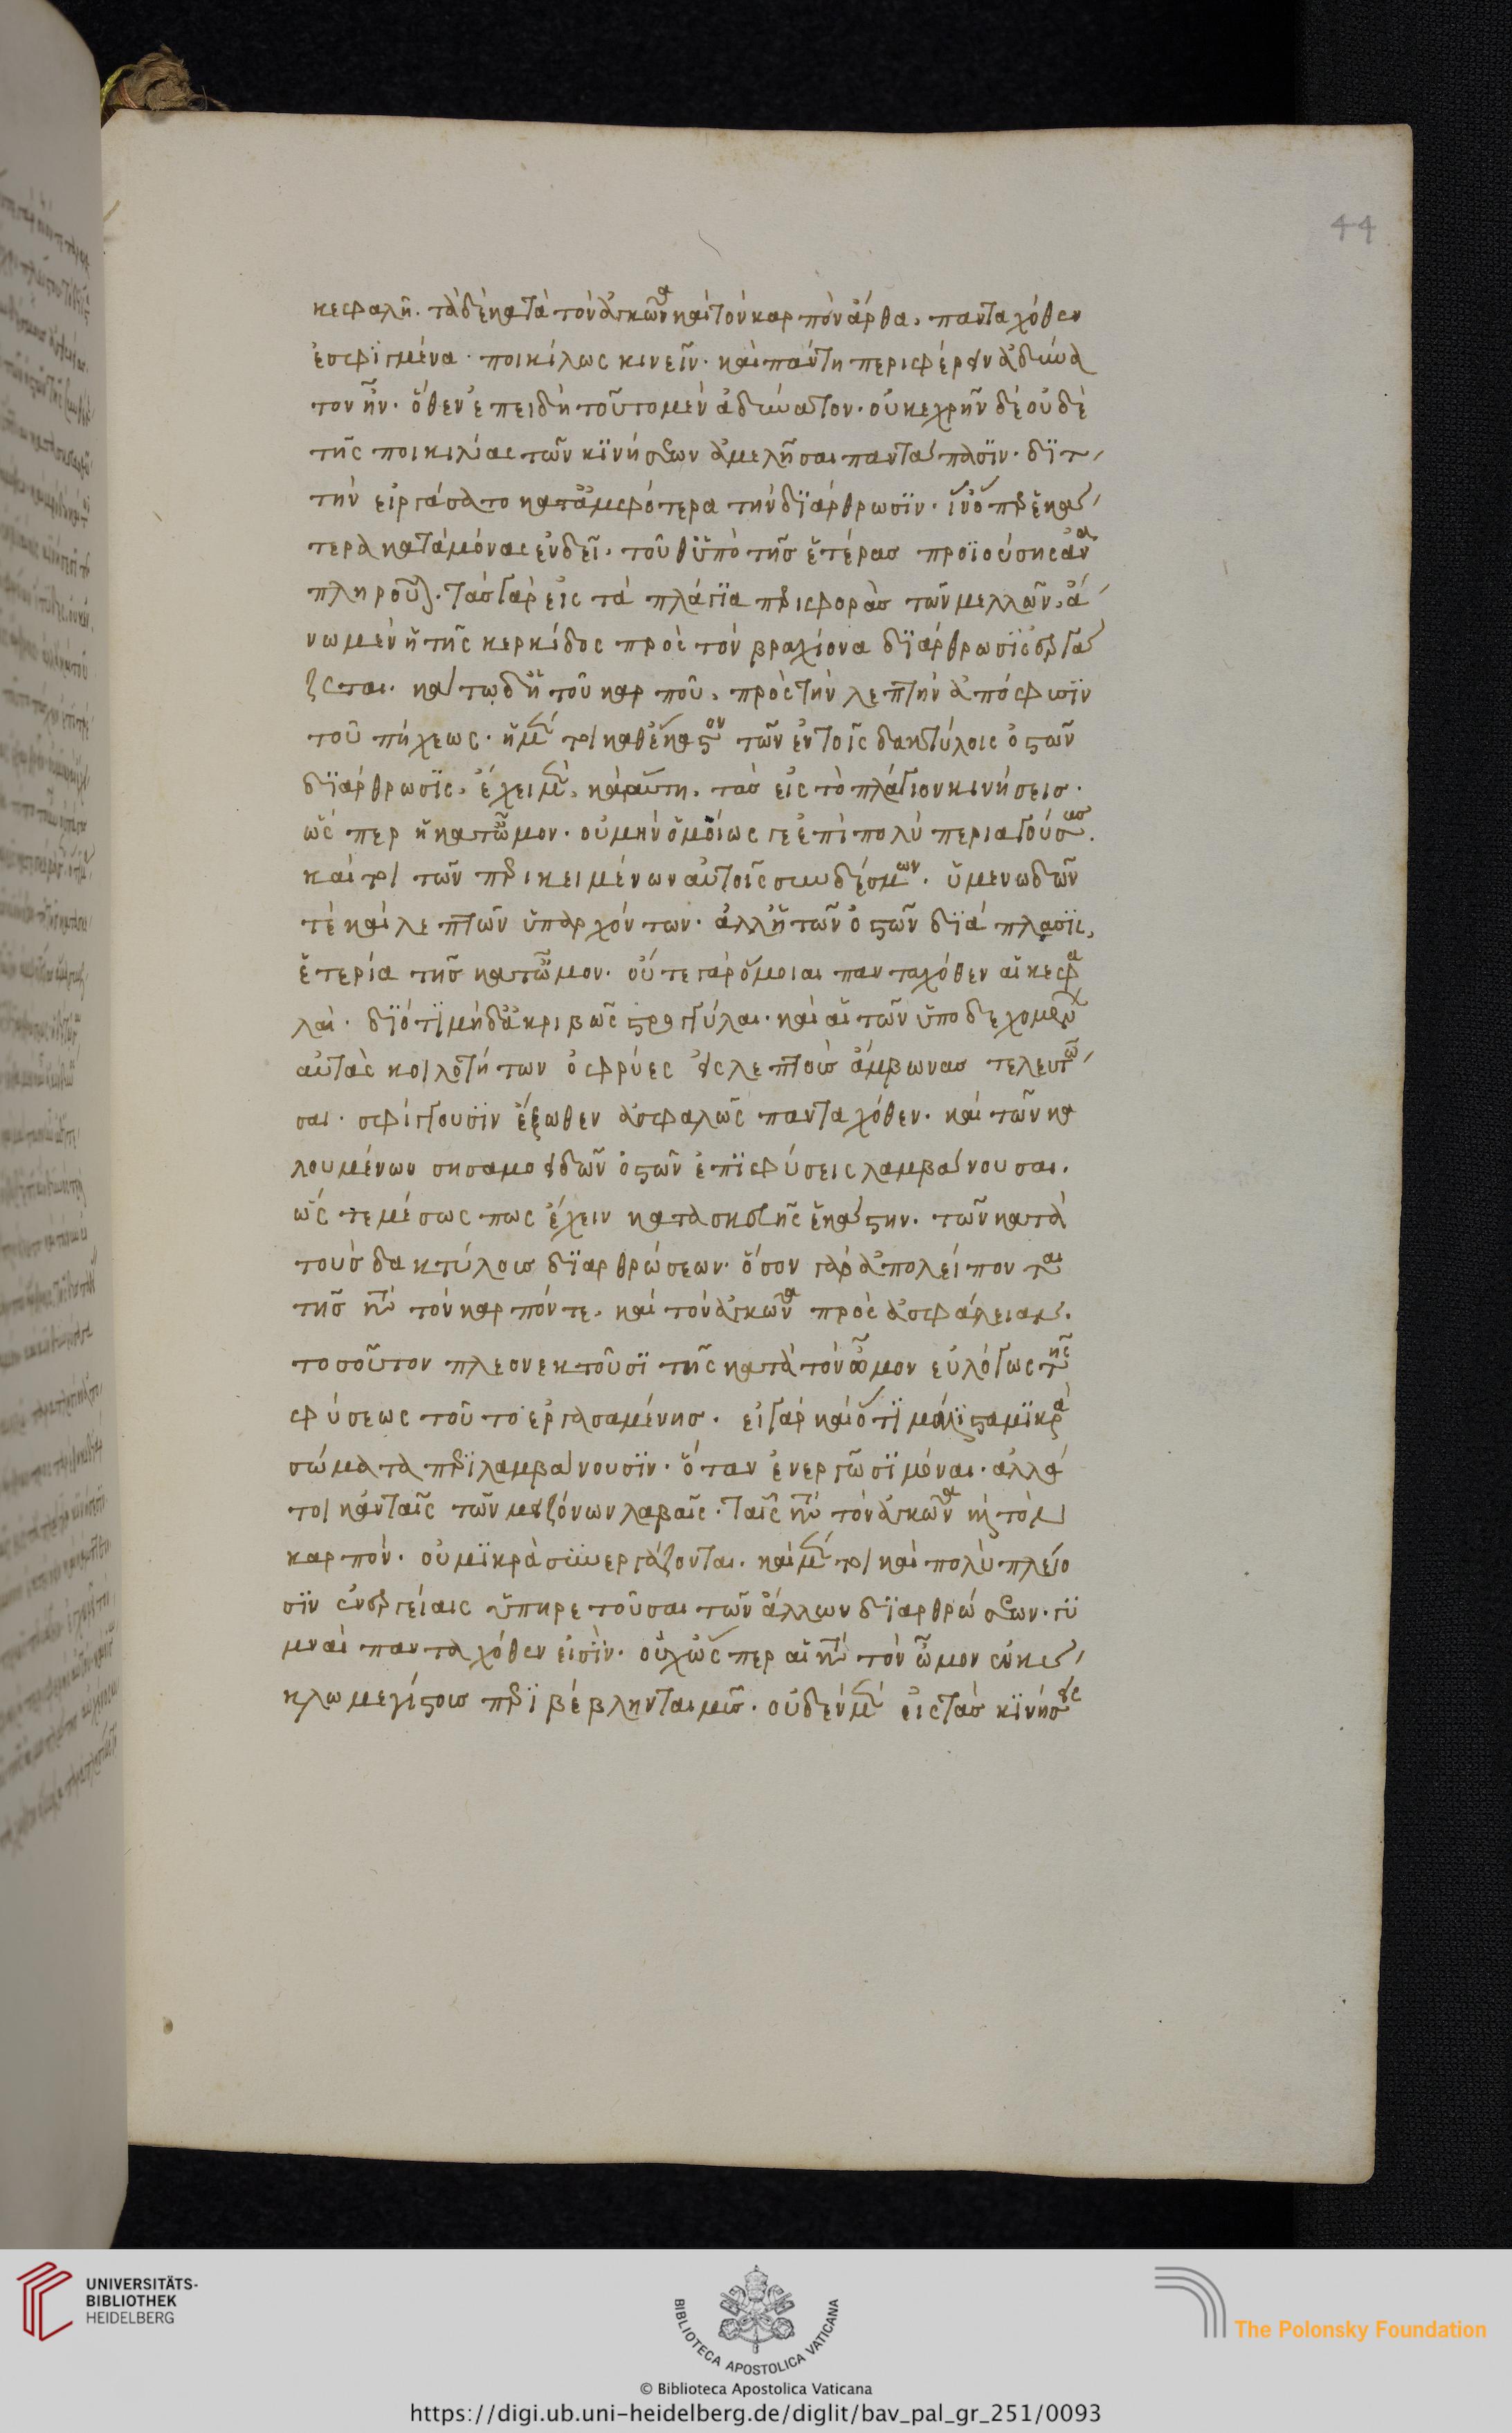 44
κεφαλῆ. τὰ δὲ κατὰ τὸν ἀγκῶνα καὶ τὸν καρπὸν ἄρθρα, πανταχόθεν
ἐσφιγμένα. ποικίλως κινεῖν. καὶ πάντη περιφέρειν ἀδύνα
τον ἦν. ὅθεν ἐπειδὴ τοῦτο μὲν ἀδύνατον. οὐκ ἐχρῆν δὲ οὐδὲ
τῆς ποικιλίας τῶν κινήσεων ἀμελῆσαι παντάπασιν. διτ
τὴν εἰργάσατο κατ' ἀμφότερα τὴν διάρθρωσιν. ἵν' ὅπερ ἑκα
τέρα κατὰ μόνας ἐνδεῖ. τοῦθ' ὑπὸ τῆς ἑτέρας προϊούσης ἀνα
πληροῦται. τὰς γὰρ εἰς τὰ πλάγια περιφορὰς τῶν μελλῶν, ἄ
νω μὲν ἡ τῆς κερκίδος πρὸς τὸν βραχίονα διάρθρωσις ἐργά
ζεται. κάτω δ' ἡ τοῦ καρποῦ, πρὸς τὴν λεπτὴν ἀπόφυσιν
τοῦ πήχεως. ἡ μέντοι καθ' ἕκαστον τῶν ἐν τοῖς δακτύλοις ὀστῶν
διάρθρωσις, ἔχει μὲν, καὶ αὕτη, τὰς εἰς τὸ πλάγιον κινήσεις.
ὥσπερ ἡ κατ' ὦμον. οὐ μὴν ὁμοίως γε ἐπὶ πολὺ περιαγούσας.
καίτοι τῶν περικειμένων αὐτοῖς συνδέσμων. ὑμενωδῶν
τὲ καὶ λεπτῶν ὑπαρχόντων. ἀλλ' ἡ τῶν ὀστῶν διάπλασις,
ἑτερία τῆς κατ' ὦμον. οὔτε γὰρ ὅμοιαι πανταχόθεν αἱ κεφα
λαὶ. διότι μὴ δ' ἀκριβῶς στρογγύλαι. καὶ αἱ τῶν ὑποδεχομένων
αὐτὰς κοιλοτήτων ὀφρύες εἰς λεπτοὺς ἄμβωνας τελευτῶ
σαι. σφίγγουσιν ἔξωθεν ἀσφαλῶς πανταχόθεν. καὶ τῶν κα
λουμένων σησαμοειδῶν ὀστῶν ἐπιφύσεις λαμβάνουσαι.
ὥς τε μέσως πως ἔχειν κατασκευῆς ἑκάστην. τῶν κατὰ
τοὺς δακτύλους διαρθρώσεων. ὅσον γὰρ ἀπολείπονται
τῆς κατὰ τὸν καρπόν τε, καὶ τὸν ἀγκῶνα πρὸς ἀσφάλειαν.
τοσοῦτον πλεονεκτοῦσι τῆς κατὰ τὸν ὦμον εὐλόγως τῆς
φύσεως τοῦτο ἐργασαμένης. εἰ γὰρ καὶ ὅτι μάλιστα μικρὰ
σώματα περιλαμβάνουσιν. ὅταν ἐνεργῶσι μόναι. ἀλλά
τοι κἀν ταῖς τῶν μειζόνων λαβαῖς. ταῖς κατὰ τὸν ἀγκῶνα καὶ τὸν
καρπόν. οὐ μικρὰ συνεργάζονται. καὶ μέντοι καὶ πολὺ πλείο
σιν ἐνεργείαις ὑπηρετοῦσαι τῶν ἄλλων διαρθρώσεων. γυ
μναὶ πανταχόθεν εἰσὶν. οὐχ ὥσπερ αἱ κατὰ τὸν ὦμον ἐν κύ
κλω μεγίστοις περιβέβληνται μυσὶ. οὐδὲν μὲν εἰς τὰς κινήσεις
UNIVERSITÄTS-
BIBLIOTHEK
HEIDELBERG
BIBLIOTECA APOSTOLICA VATICANA
The Polonsky Foundation
© Biblioteca Apostolica Vaticana
https://digi.ub.uni-heidelberg.de/diglit/bav_pal_gr_251/0093